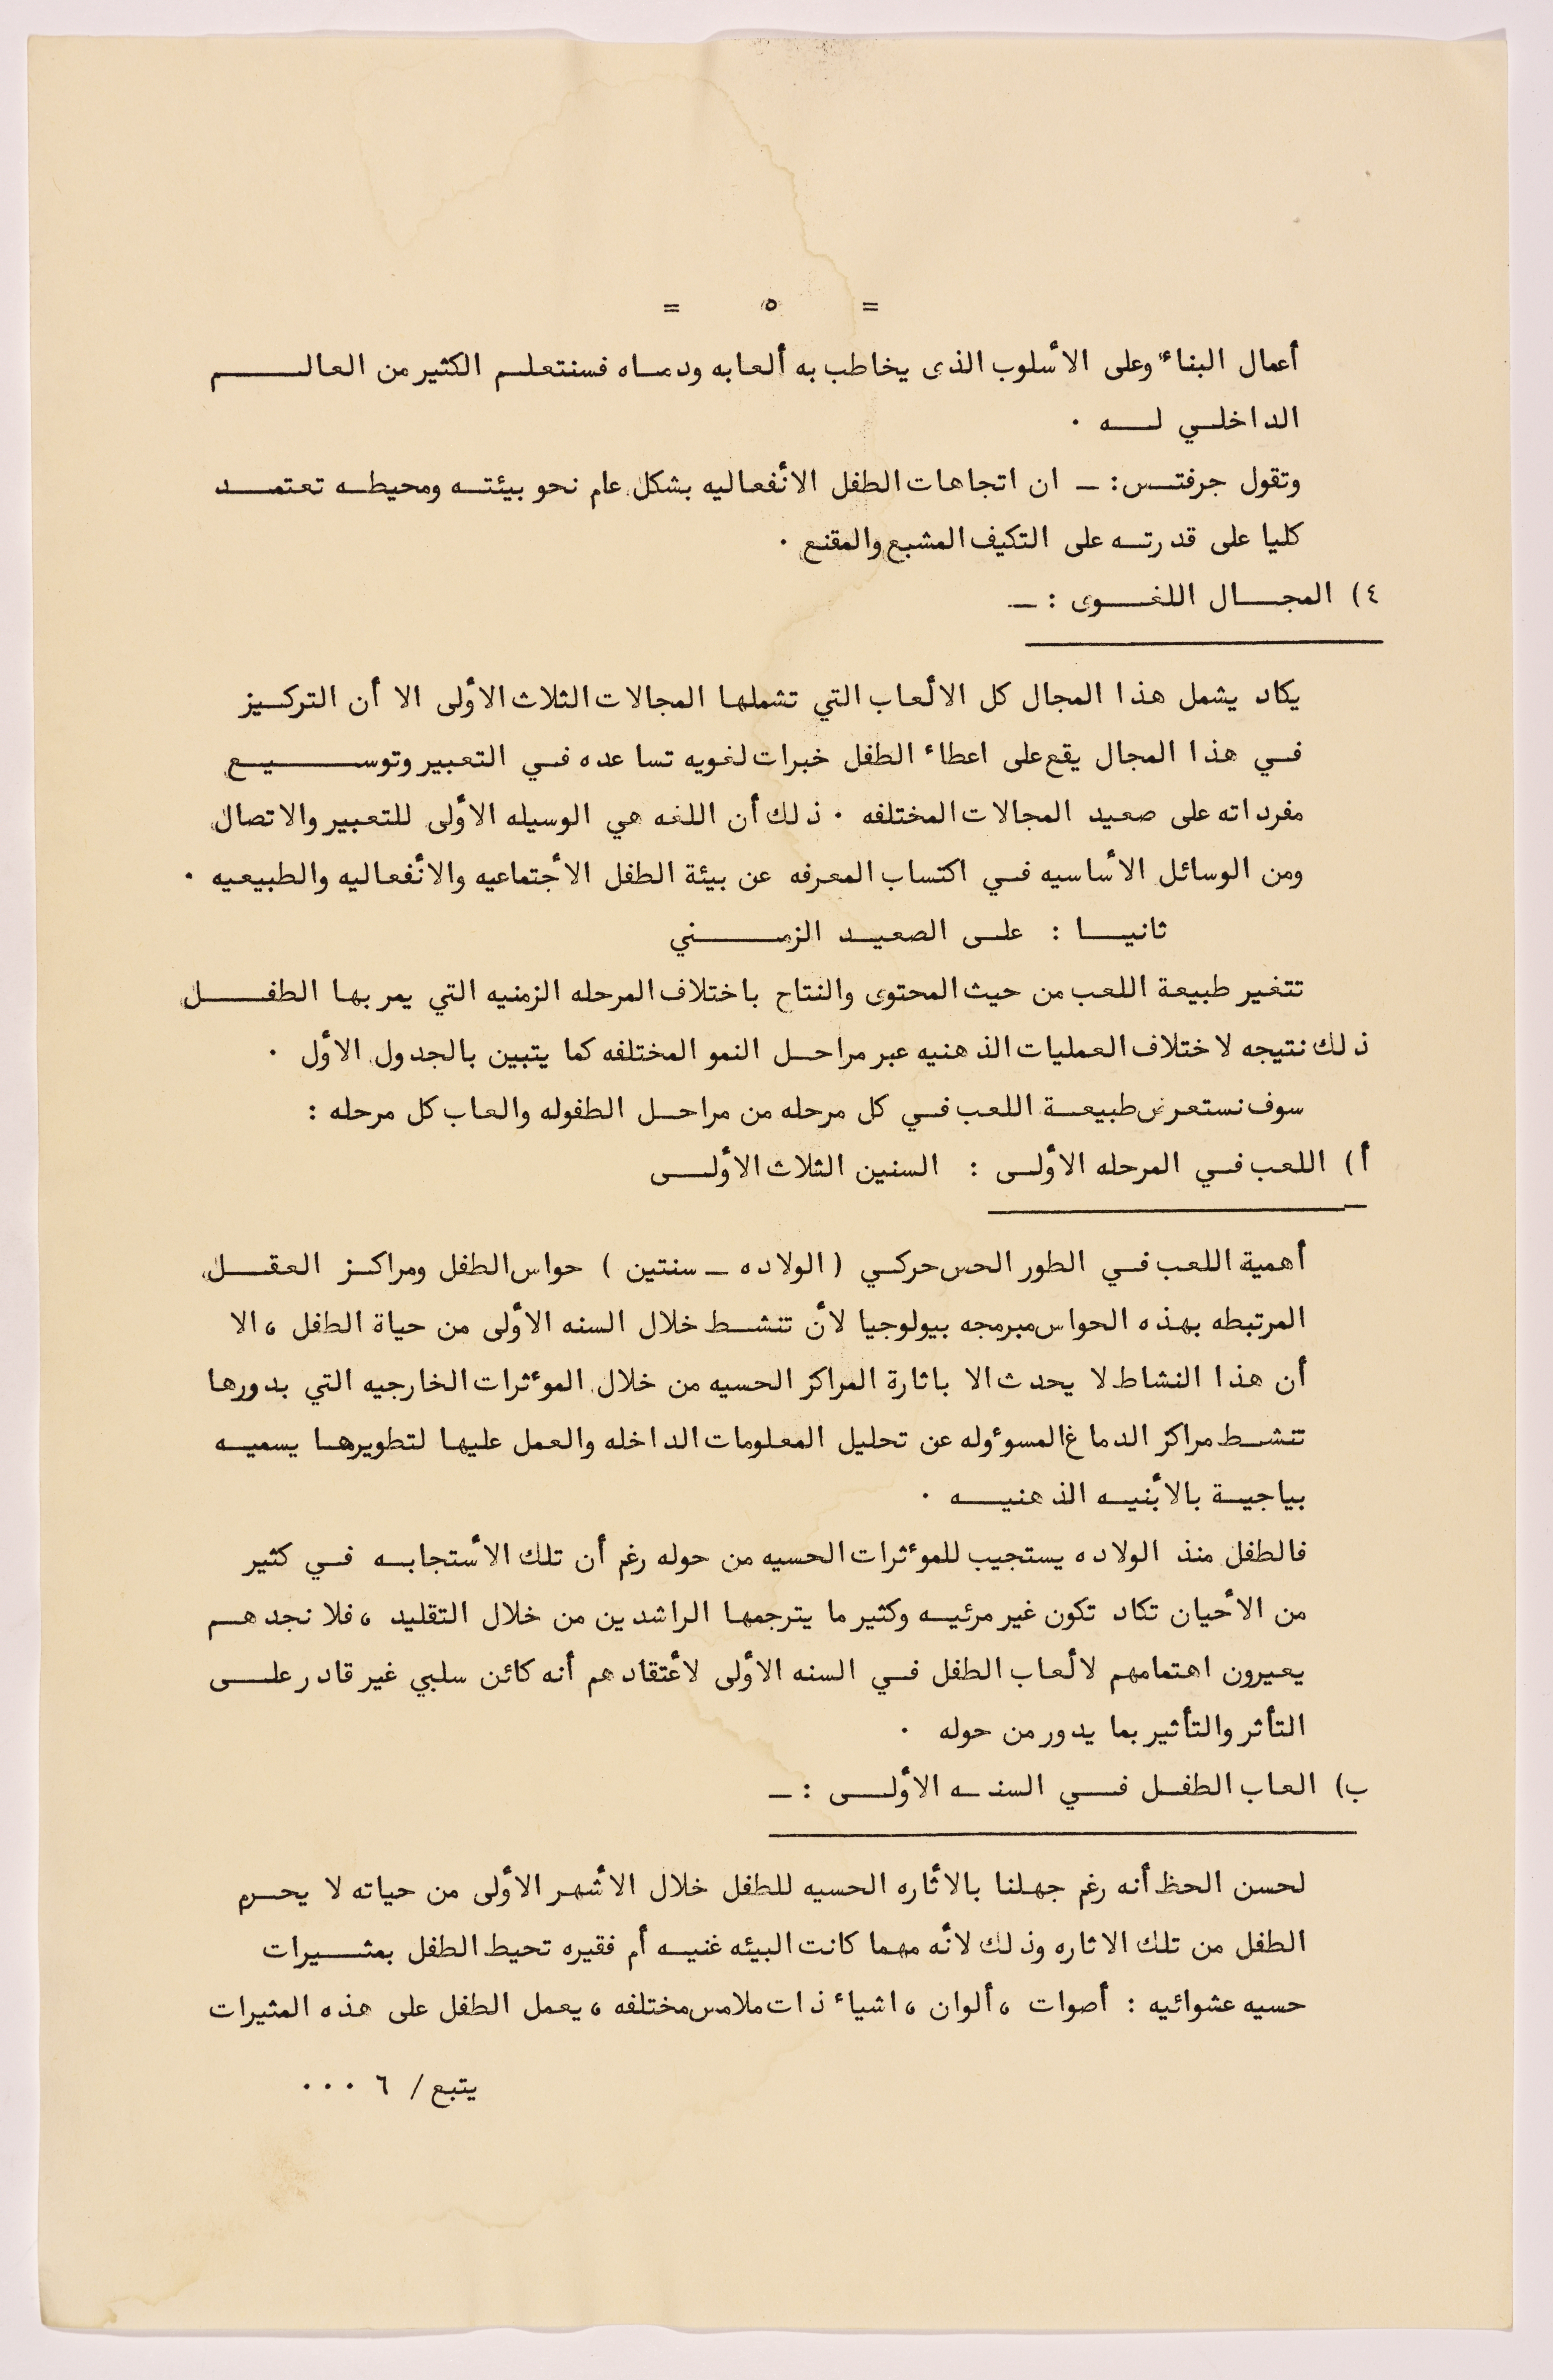 = ٥ =
أعمال البناء وعلى الأسلوب الذى يخاطب به ألعابه ودماه فسنتعلم الكثير من العالم
الداخلي له ٠
وتقول جرفتس : ـ ان اتجاهات الطفل الأنفعاليه بشكل عام نحو بيئته ومحيطه تعتمد
كليا على قدرته على التكيف المشبع والمقنع ٠
٤) المجال اللغوى : ـ
يكاد يشمل هذا المجال كل الألعاب التي تشملها المجالات الثلاث الأولى الا أن التركيز
في هذا المجال يقع على اعطاء الطفل خبرات لغويه تساعده في التعبير وتوسيع
مفرداته على صعيد المجالات المختلفه ٠ ذلك أن اللغه هي الوسيله الأولى للتعبير والاتصال
ومن الوسائل الأساسيه في اكتساب المعرفه عن بيئة الطفل الأجتماعيه والأنفعاليه والطبيعيه ٠
ثانيا : على الصعيد الزمني
تتغير طبيعة اللعب من حيث المحتوى والنتاج باختلاف المرحله الزمنيه التي يمر بها الطفل
ذلك نتيجه لاختلاف العمليات الذهنيه عبر مراحل النمو المختلفه كما يتبين بالجدول الأول ٠
سوف نستعرض طبيعة اللعب في كل مرحله من مراحل الطفوله والعاب كل مرحله :
أ) اللعب في المرحله الأولى : السنين الثلاث الأولى
أهمية اللعب في الطور الحس حركي ( الولاده ـ سنتين ) حواس الطفل ومراكز العقل
المرتبطه بهذه الحواس مبرمجه بيولوجيا لأن تنشط خلال السنه الأولى من حياة الطفل ، الا
أن هذا النشاط لا يحدث الا باثارة المراكز الحسيه من خلال الموءثرات الخارجيه التي بدورها
تنشط مراكز الدماغ المسوءوله عن تحليل المعلومات الداخله والعمل عليها لتطويرها يسميه
بياجية بالأبنيه الذهنيه ٠
فالطفل منذ الولاده يستجيب للموءثرات الحسيه من حوله رغم أن تلك الأستجابه في كثير
من الأحيان تكاد تكون غير مرئيه وكثير ما يترجمها الراشدين من خلال التقليد ، فلا نجدهم
يعيرون اهتمامهم لألعاب الطفل في السنه الأولى لأعتقادهم أنه كائن سلبي غير قادر على
التأثر والتأثير بما يدور من حوله ٠
ب) العاب الطفل في السنه الأولى : ـ
لحسن الحظ أنه رغم جهلنا بالأثاره الحسيه للطفل خلال الأشهر الأولى من حياته لا يحرم
الطفل من تلك الاثاره وذلك لأنه مهما كانت البيئه غنيه أم فقيره تحيط الطفل بمثيرات
حسيه عشوائيه : أصوات ، ألوان ، اشياء ذات ملامس مختلفه ، يعمل الطفل على هذه المثيرات
يتبع / ٦ ٠٠٠